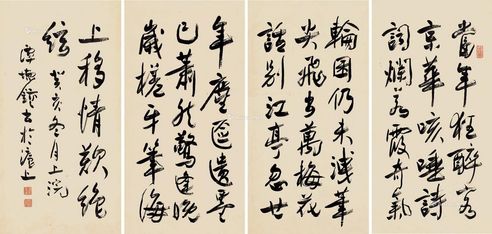 當年狂醉客
京華咳唾詩
詞爛若霞奇氣
輪囷仍未減筆
尖飛出萬梅花
話別江亭忽廿
年塵匧遺墨
已蕭然驚逢晚
歲槎牙筆海
上移情歎絕
絃 癸亥冬月上浣
書於滬上